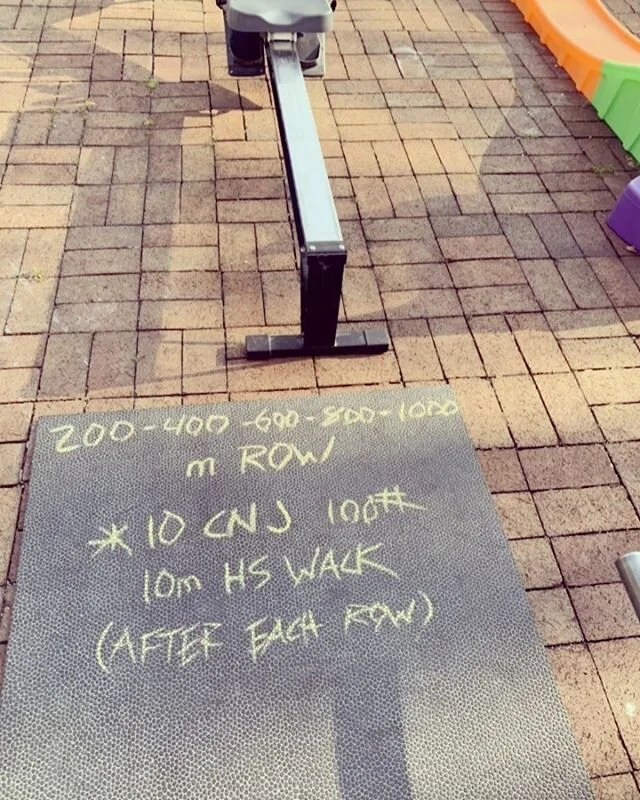 200-400-600-800-1000
m ROW
* 10 CNJ 100#
10m HS WALK
(AFTER EACH ROW)